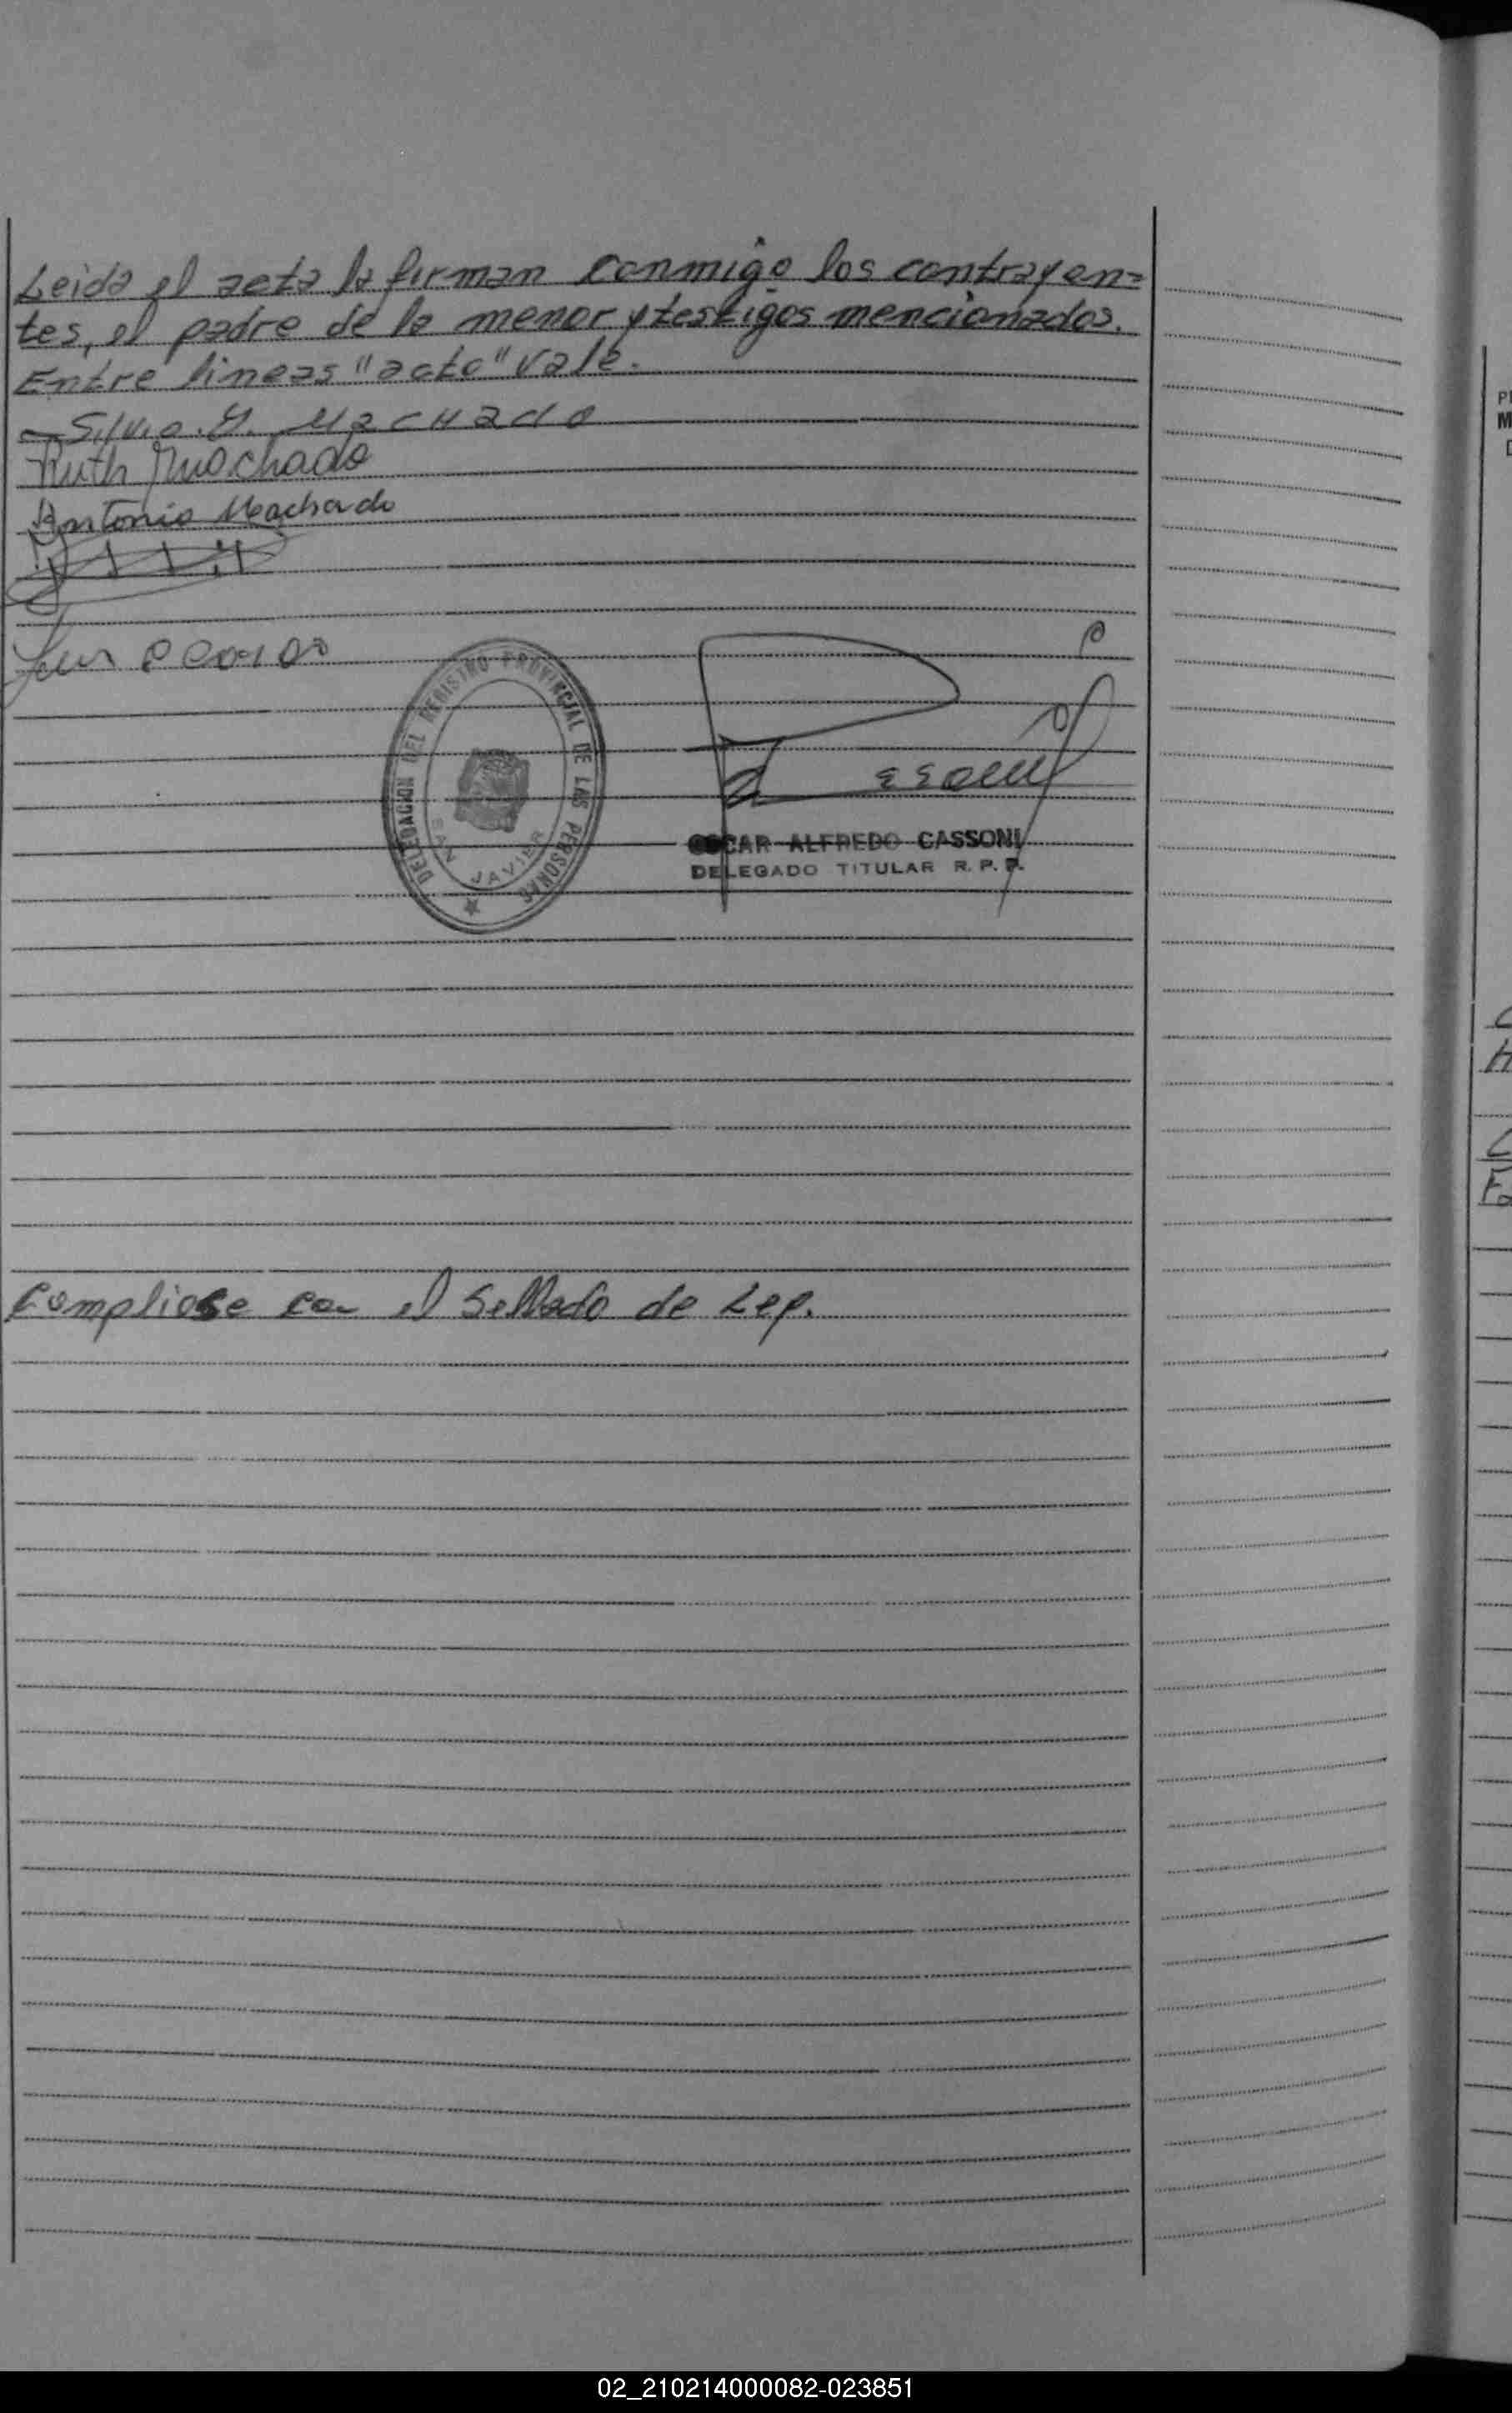 Leida el acta la firman conmigo los contrayen=
tes, el padre de la menor y testigos mencionados.
Entre lineas "acto" vale.
Silvio. G. Machado
Ruth Machado
Antonio Machado
DELEGACION DEL REGISTRO PROVINCIAL DE LAS PERSONAS
SAN JAVIER
OSCAR ALFREDO CASSONI
DELEGADO TITULAR R. P. P.
Compliose con el Sellado de Ley.
02_210214000082-023851